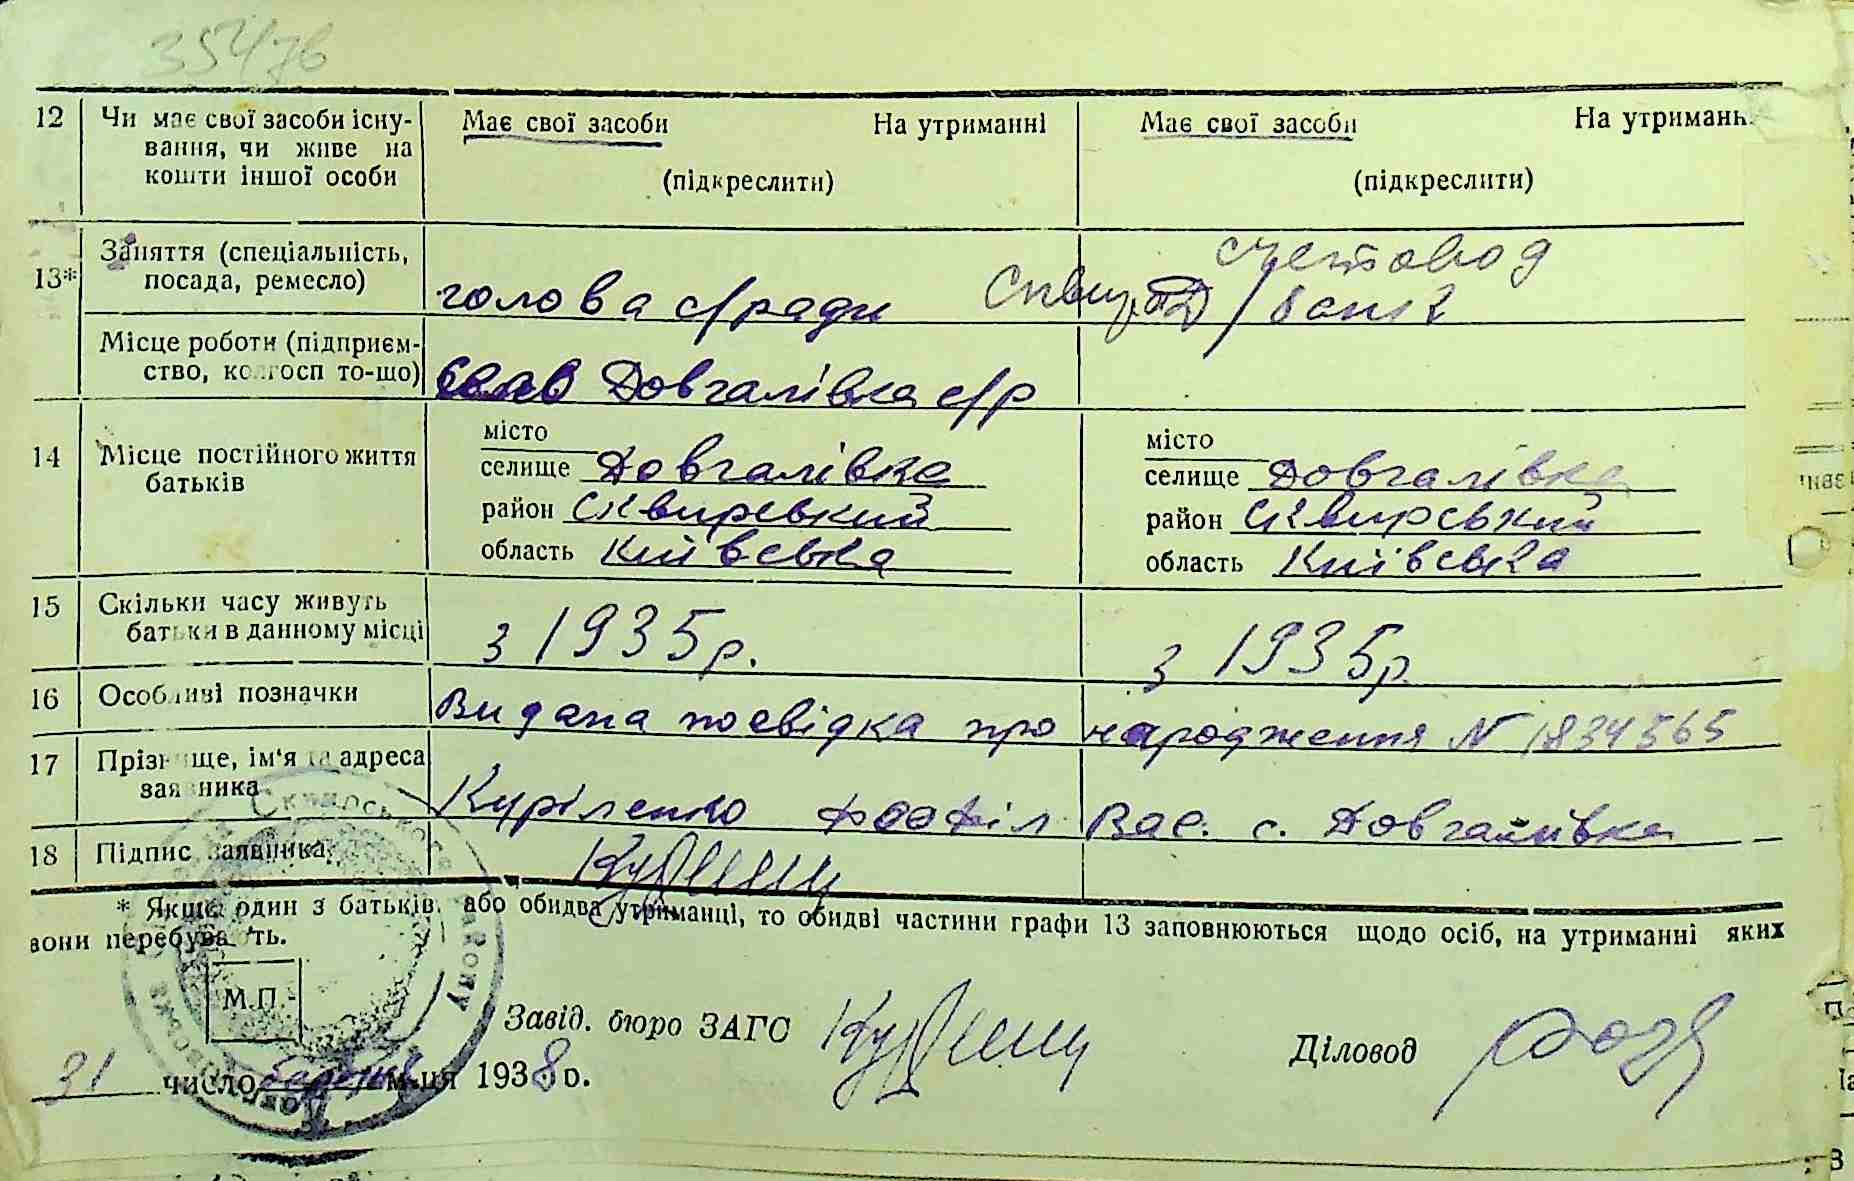 35476
12 Чи має свої засоби існу- Має свої засоби На утриманні Має свої засоби На утриманн
вання, чи живе на
кошти іншої особи (підкреслити) (підкреслити)
13* Заняття (спеціальність, счетовод
посада, ремесло) голова с/ради
Місце роботи (підприєм-
ство, колгосп то-що) Довгалівка с/р
14 Місце постійного життя місто місто
батьків селище Довгалівка селище Довгалівка
район Сквирський район Сквирський
область Київська область Київська
15 Скільки часу живуть
батьки в данному місці з 1935 р. з 1935 р.
16 Особливі позначки Видана посвідка про народження N 1834565
17 Прізвище, ім'я та адреса
заявника Куріленко Феофіл Вас. с. Довгалівка
18 Підпис заявника
* Якщо один з батьків або обидва утриманці, то обидві частини графи 13 заповнюються щодо осіб, на утриманні яких
вони перебувають.
М.П.
Завід. бюро ЗАГС Діловод
31 число березня м-ця 1938 р.